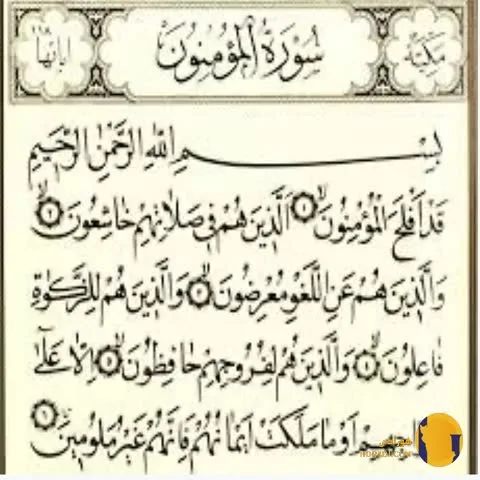 مكية
سورة المؤمنون
اياتها ١١٨
بسم الله الرحمن الرحيم
قَدْ اَفْلَحَ الْمُؤْمِنُونَ ١ اَلَّذ۪ينَ هُمْ ف۪ي صَلَاتِهِمْ خَاشِعُونَ ٢
وَالَّذ۪ينَ هُمْ عَنِ اللَّغْوِ مُعْرِضُونَ ٣ وَالَّذ۪ينَ هُمْ لِلزَّكٰوةِ
فَاعِلُونَ ٤ وَالَّذ۪ينَ هُمْ لِفُرُوجِهِمْ حَافِظُونَ ٥ اِلَّا عَلٰٓى
اَوْ مَا مَلَكَتْ اَيْمَانُهُمْ فَاِنَّهُمْ غَيْرُ مَلُوم۪ينَ ٦